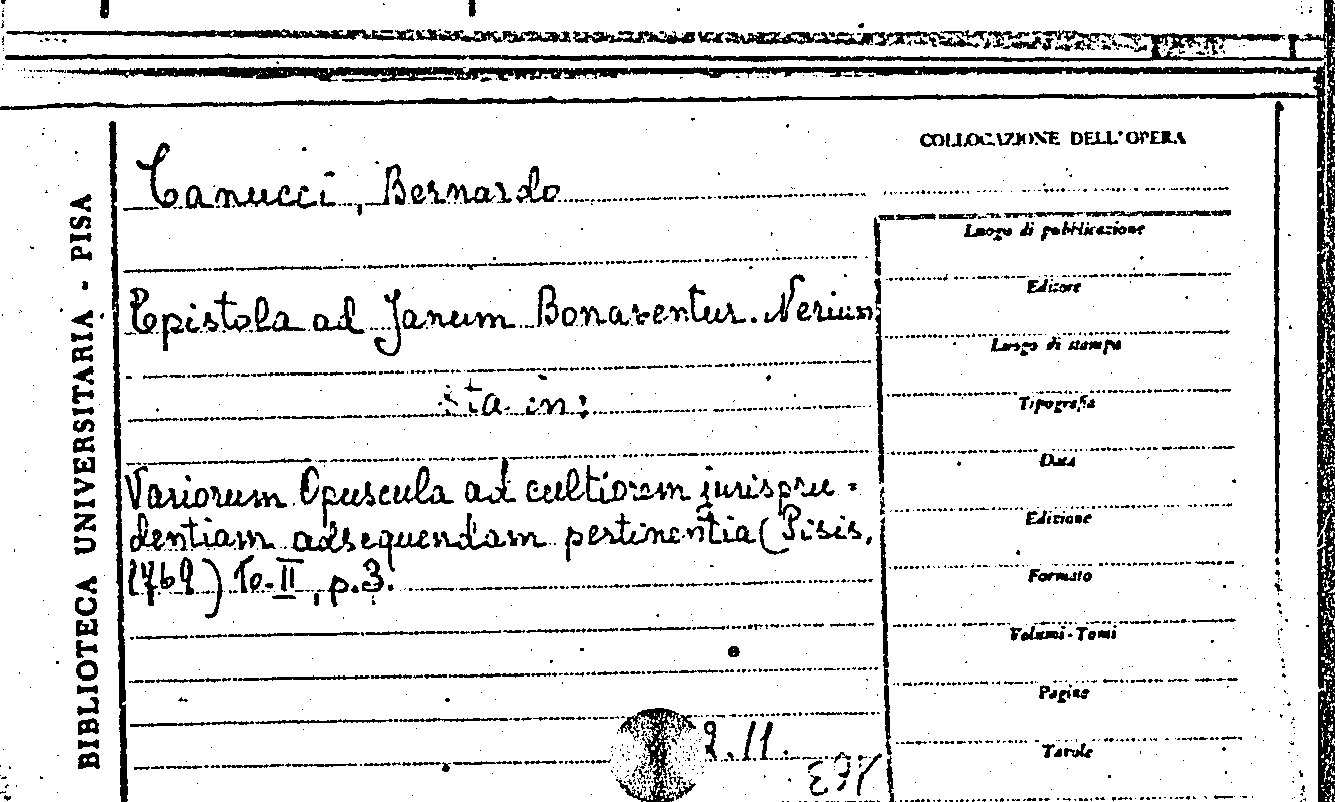 BIBLIOTECA UNIVERSITARIA - PISA
Tanucci, Bernardo
Epistola ad Janum Bonaventur. Nerium
sta in:
Variorum Opuscula ad cultiorem jurispru=
dentiam adsequendam pertinentia (Pisis,
1769) To. II, p.3.
2.11.
COLLOCAZIONE DELL'OPERA
Luogo di pubblicazione
Editore
Luogo di stampa
Tipografia
Data
Edizione
Formato
Volumi-Tomi
Pagine
Tavole